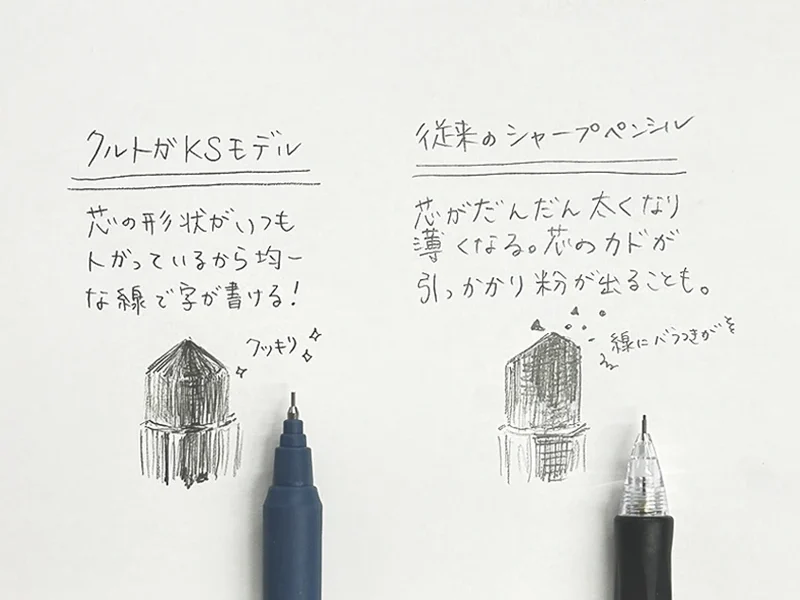 クルトガKSモデル
芯の形状がいつも
トがっているから均一
な線で字が書ける!
クッキリ
従来のシャープペンシル
芯がだんだん太くなり
薄くなる。芯のカドが
引っかかり粉が出ることも。
線にバラつきが